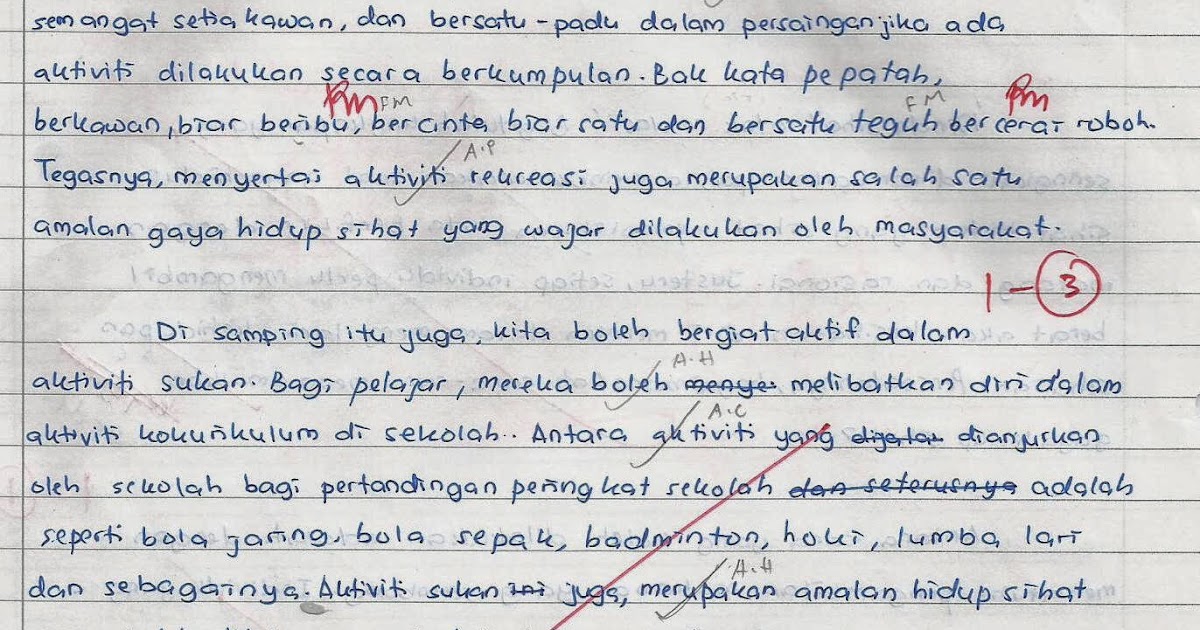 semangat setia kawan, dan bersatu-padu dalam persaingan jika ada
aktiviti dilakukan secara berkumpulan. Bak kata pepatah,
FM FM
berkawan, biar beribu, bercinta biar satu dan bersatu teguh bercerai roboh.
A.P
Tegasnya, menyertai aktiviti rekreasi juga merupakan salah satu
amalan gaya hidup sihat yang wajar dilakukan oleh masyarakat.
1-3
Di samping itu juga, kita boleh bergiat aktif dalam
A.H
aktiviti sukan. Bagi pelajar, mereka boleh menye melibatkan diri dalam
A.C
aktiviti kokurikulum di sekolah.. Antara aktiviti yang dianjurkan
oleh sekolah bagi pertandingan peringkat sekolah dan seterusnya adalah
seperti bola jaring, bola sepak, badminton, hoki, lumba lari
A.H
dan sebagainya. Aktiviti sukan ini juga, merupakan amalan hidup sihat